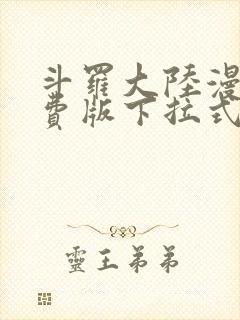 斗羅大陸漫
費版下拉式
靈王弟弟